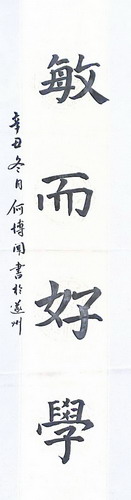 敏而好學
辛丑冬月何博闻書於遂州